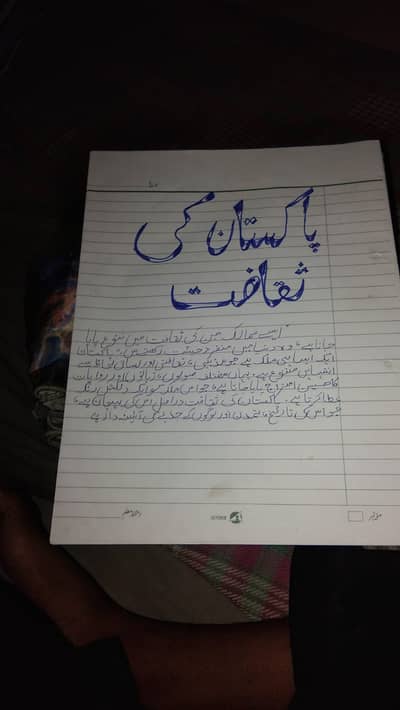 پاکستان کی
ثقافت
ایسے ممالک جن کی ثقافت میں تنوع پایا
جاتا ہے، وہ دنیا میں منفرد حیثیت رکھتے ہیں۔ پاکستان
ایک ایسا ہی ملک ہے جو مذہبی، ثقافتی اور لسانی لحاظ سے
انتہائی متنوع ہے۔ یہاں مختلف صوبوں، زبانوں اور روایات
کا حسین امتزاج پایا جاتا ہے، جو اس ملک کو ایک دلکش رنگ
عطا کرتا ہے۔ پاکستان کی ثقافت دراصل اس کی پہچان ہے،
جو اس کی تاریخ، تمدن اور لوگوں کے جذبے کی آئینہ دار ہے